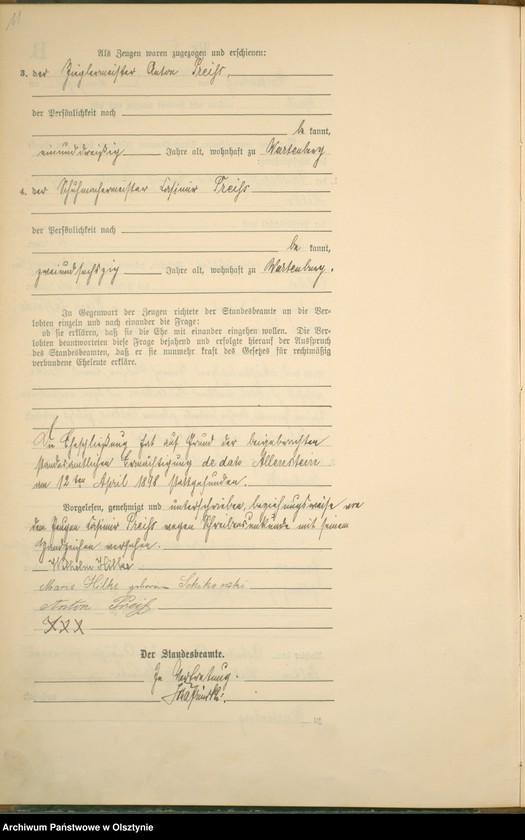 Als Zeugen waren zugezogen und erschienen:
3. der Zieglermeister Anton Preiß,
der Persönlichkeit nach
bekannt,
einunddreißig Jahre alt, wohnhaft zu Wartenburg
4. der Schuhmachermeister Casimir Preiß
der Persönlichkeit nach
bekannt,
zweiundsechzig Jahre alt, wohnhaft zu Wartenburg.
In Gegenwart der Zeugen richtete der Standesbeamte an die Ver-
lobten einzeln und nach einander die Frage:
ob sie erklären, daß sie die Ehe mit einander eingehen wollen. Die Ver-
lobten beantworteten diese Frage bejahend und erfolgte hierauf der Ausspruch
des Standesbeamten, daß er sie nunmehr kraft des Gesetzes für rechtmäßig
verbundene Eheleute erkläre.
Die Eheschließung hat auf Grund der beigebrachten
standesamtlichen Ermächtigung de dato Allenstein
am 12ten April 1898 stattgefunden.
Vorgelesen, genehmigt und unterschrieben, beziehungsweise von
dem Zeugen Casimir Preiß wegen Schreibensunkunde mit seinem
Handzeichen versehen.
Wilhelm Hilke
Marie Hilke geborene
Anton Preiß
XXX
Der Standesbeamte.
In Vertretung.
Archiwum Państwowe w Olsztynie